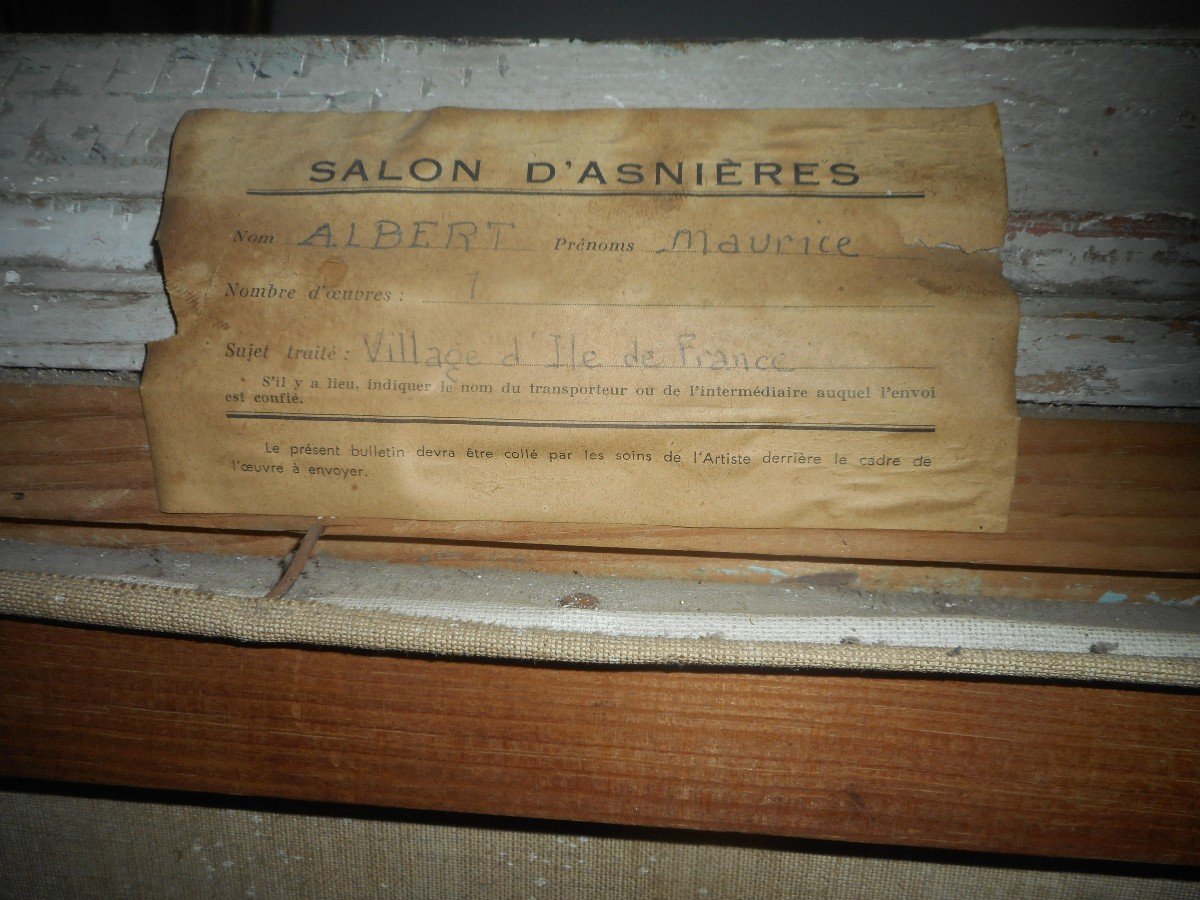 SALON D'ASNIÈRES
Nom ALBERT Prénoms Maurice
Nombre d'œuvres : 1
Sujet traité : Village d'Ile de France
S'il y a lieu, indiquer le nom du transporteur ou de l'intermédiaire auquel l'envoi
est confié.
Le présent bulletin devra être collé par les soins de l'Artiste derrière le cadre de
l'œuvre à envoyer.